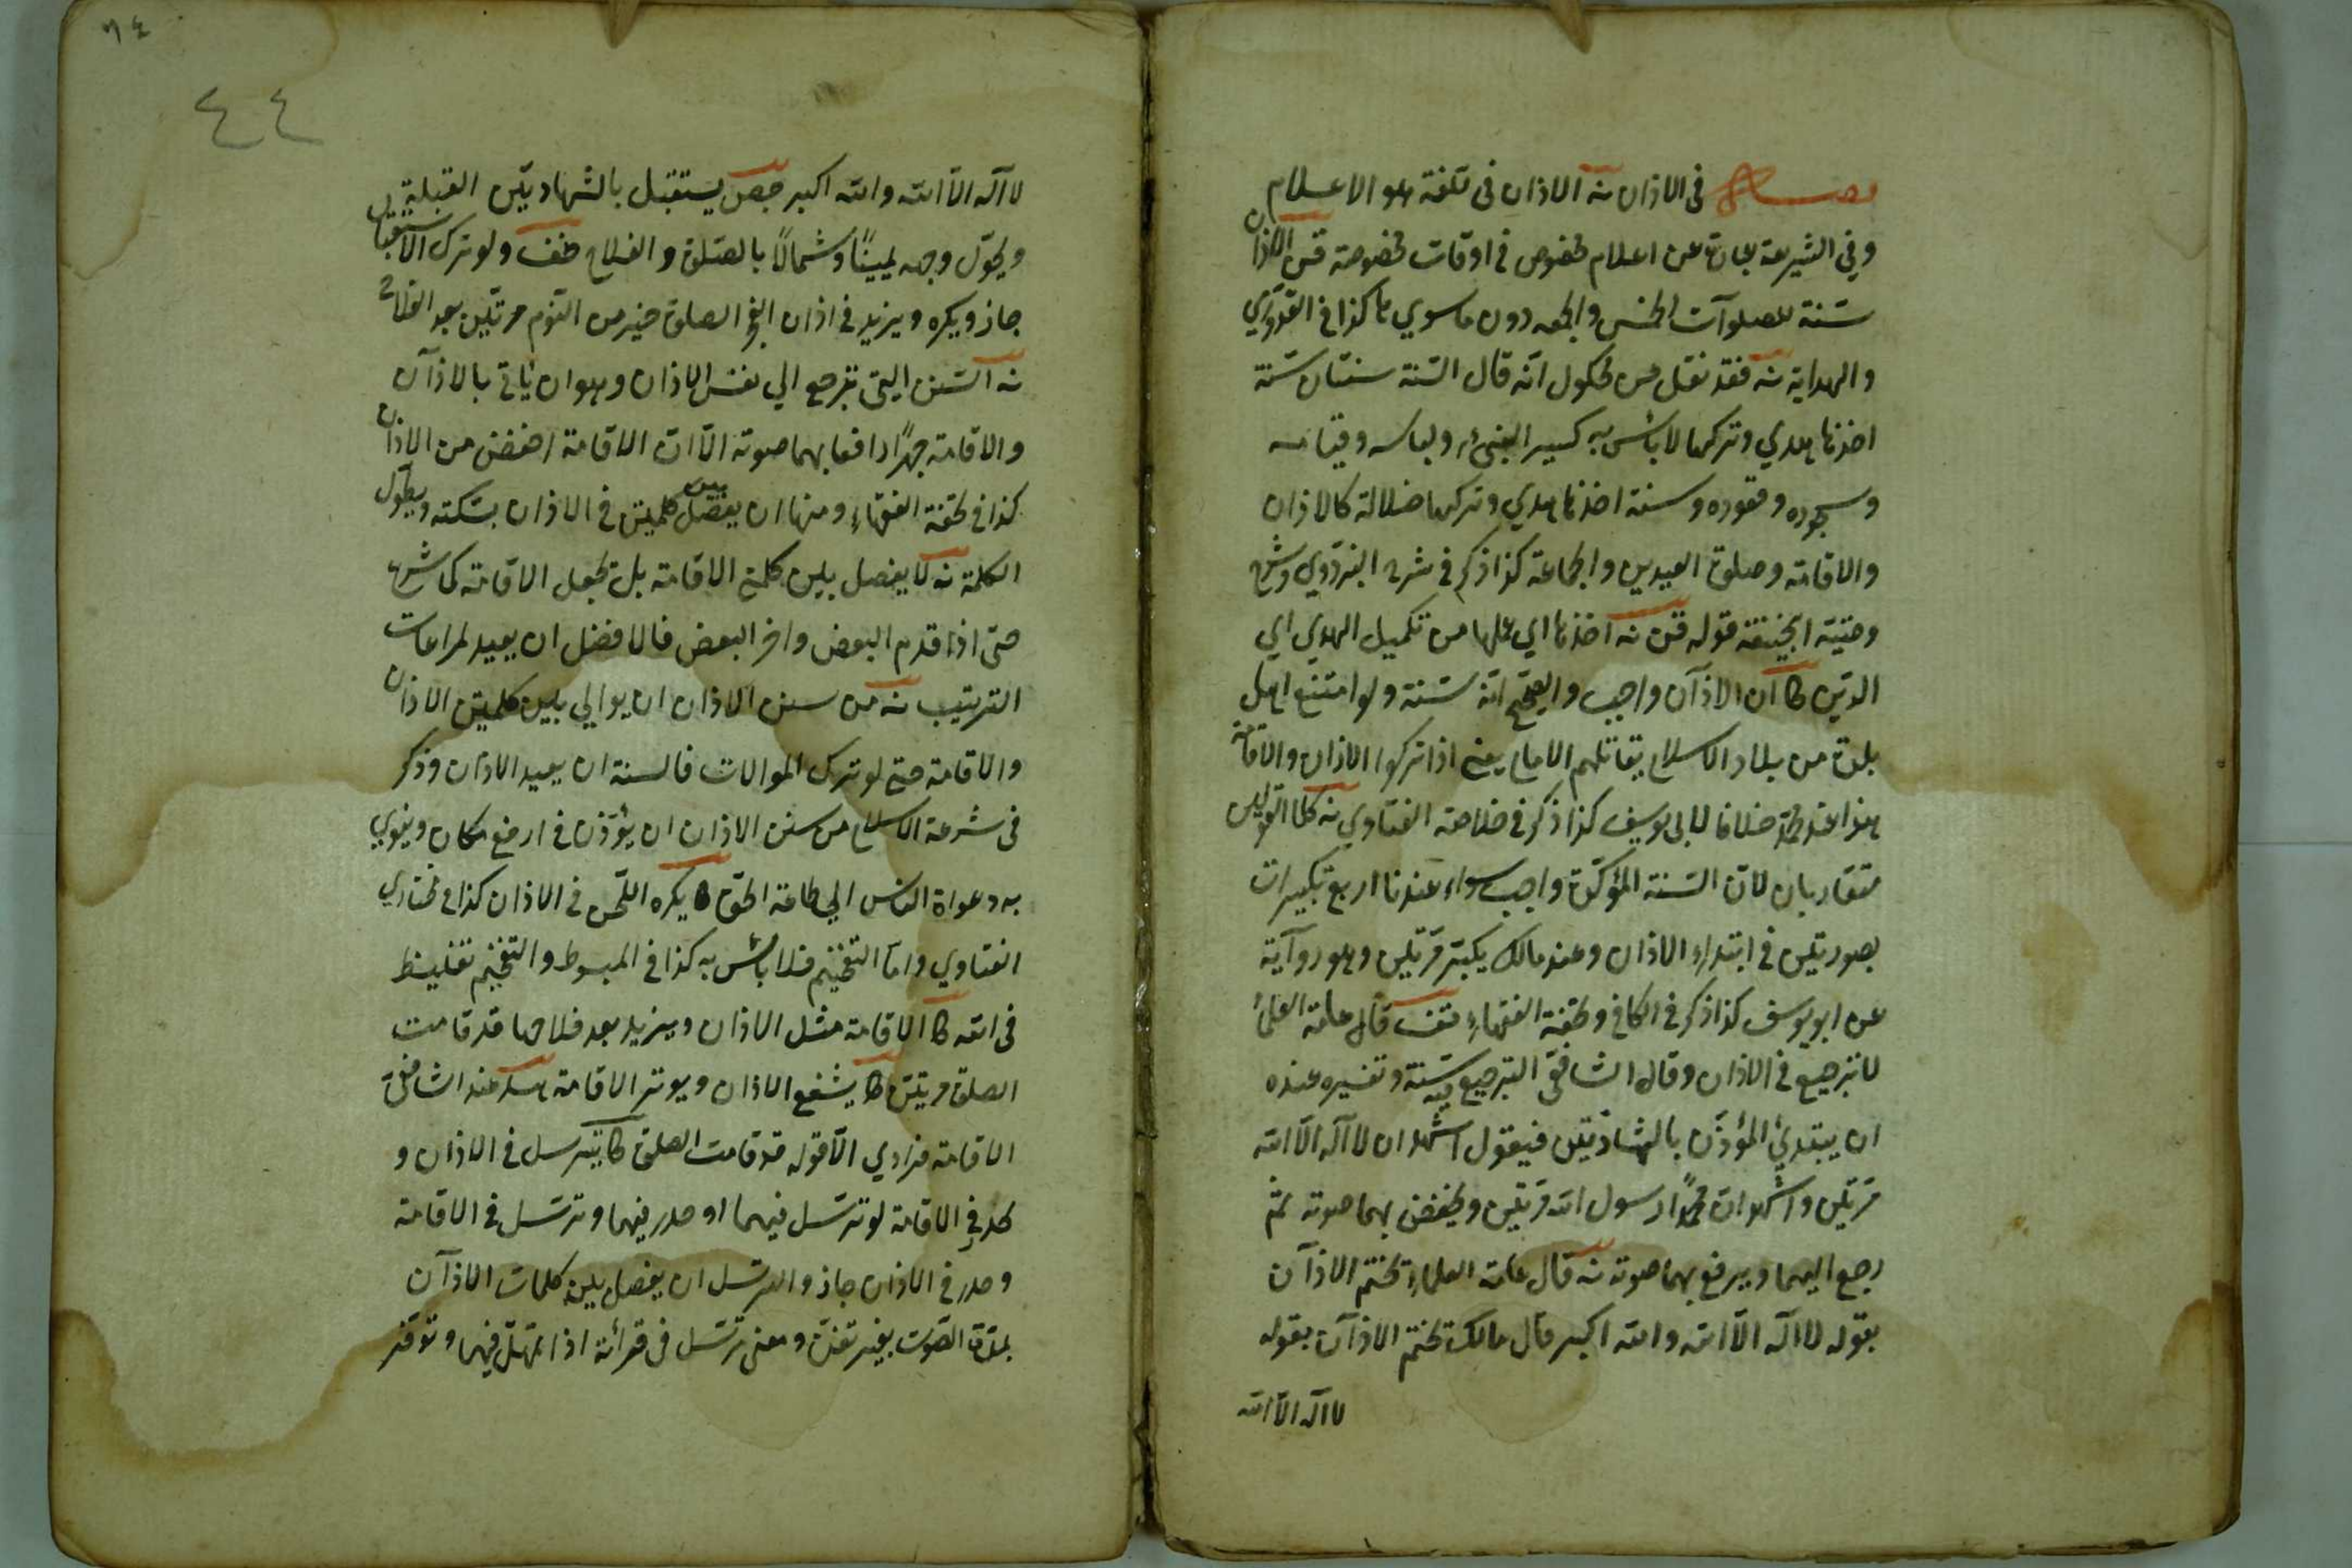 فصل في الاذان نه الاذان في اللغة هو الاعلام
وفي الشريعة عبارة عن اعلام مخصوص في اوقات مخصوصة قن الاذان
سنة للصلوات الخمس والجمعه دون ما سوي ها كذا في القدوري
والهداية نه فقد نقل عن مكحول انه قال السنة سنتان سنة
اخذها هدي وتركها لا بأس به كسير النبي ولباسه وقيامه
وسجوده وقعوده وسنة اخذها هدي وتركها ضلالة كالاذان
والاقامة وصلوة العيدين والجماعة كذا ذكر في شرح البزدوي وشرح
قوله قن نه اخذها اي عملها من تكميل الهدي اي
الدين كا ان الاذان واجب والصحيح انه سنة ولو امتنع اهل
بلدة من بلاد الاسلام يقاتلهم الامام يعني اذا تركوا الاذان والاقامة
هذا عند محمد خلافا لابي يوسف كذا ذكر في خلاصة الفتاوي نه كلا القولين
متقاربان لان السنة المؤكدة واجب سواء عندنا اربع تكبيرات
بصوتين في ابتداء الاذان وعند مالك يكبر مرتين وهو رواية
عن ابو يوسف كذا ذكر في الكافي وتحفة الفقهاء قال عامة العلماء
لا ترجيع في الاذان وقال الشافعي الترجيع سنة وتفسيره عنده
ان يبتدئ المؤذن بالشهادتين فيقول اشهد ان لا اله الا الله
مرتين واشهد ان محمدا رسول الله مرتين ويخفض بهما صوته ثم
رجع اليهما ويرفع بهما صوته نه قال عامة العلماء تختم الاذان
بقوله لا اله الا الله والله اكبر قال مالك تختم الاذان بقوله
لا اله الا الله
٤٤
لا اله الا الله والله اكبر يستقبل بالشهادتين القبلة
ويحول وجهه يمينا وشمالا بالصلوة والفلاح ولو ترك الاستقبال
جاز ويكره ويزيد في اذان الفجر الصلوة خير من النوم مرتين بعد الفلاح
نه السنن التي ترجع الي نفس الاذان وهو ان ياتي بالاذان
والاقامة جهرا رافعا بهما صوته الا ان الاقامة اخفض من الاذان
كذا في تحفة الفقهاء ومنها ان يفصل بين كلمتين في الاذان بسكته ويطول
الكلمة نه لا يفصل بين كلمتي الاقامة بل تجعل الاقامة كما شرع
حتى اذا قدم البعض واخر البعض فالافضل ان يعيد لمراعات
الترتيب نه من سنن الاذان ان يوالي بين كلمتين الاذان
والاقامة حتى لو ترك الموالات فالسنة ان يعيد الاذان وذكر
في شرعة الاسلام من سنن الاذان ان يؤذن في ارفع مكان وينوي
به دعوة الناس الي طاعة الحق كا يكره اللحن في الاذان كذا في مختاري
الفتاوي واما التفخيم فلا بأس به كذا في المبسوط والتفخيم تغليظ
في الله كا الاقامة مثل الاذان ويزيد بعد فلاحها قد قامت
الصلوة مرتين كا يشفع الاذان ويوتر الاقامة عند الشافعي
الاقامة فرادي الا قوله قد قامت الصلوة كا يترسل في الاذان و
يحدر في الاقامة لو ترسل فيهما او حدر فيهما وترسل في الاقامة
وحدر في الاذان جاز والترسل ان يفصل بين كلمات الاذان
بمدة الصوت بغير تغن ومعنى ترسل في قرائة اذا تمهل فيها وتوقر